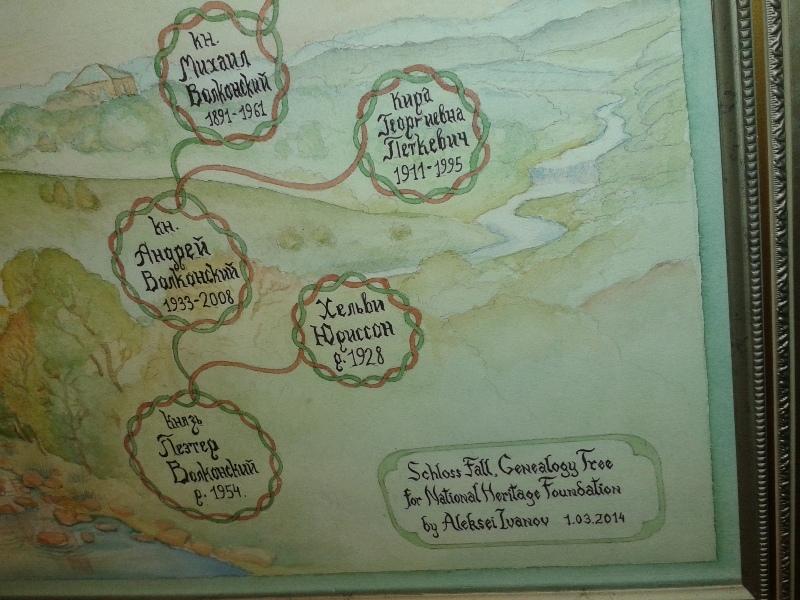 кн.
Михаил
Волконский
1891-1961
Кира
Георгиевна
Петкевич
1911-1995
кн.
Андрей
Волконский
1933-2008
Хельви
Юриссон
р. 1928
князь
Пеэтер
Волконский
р. 1954.
Schloss Fall, Genealogy Tree
for National Heritage Foundation
by Aleksei Ivanov 1.03.2014